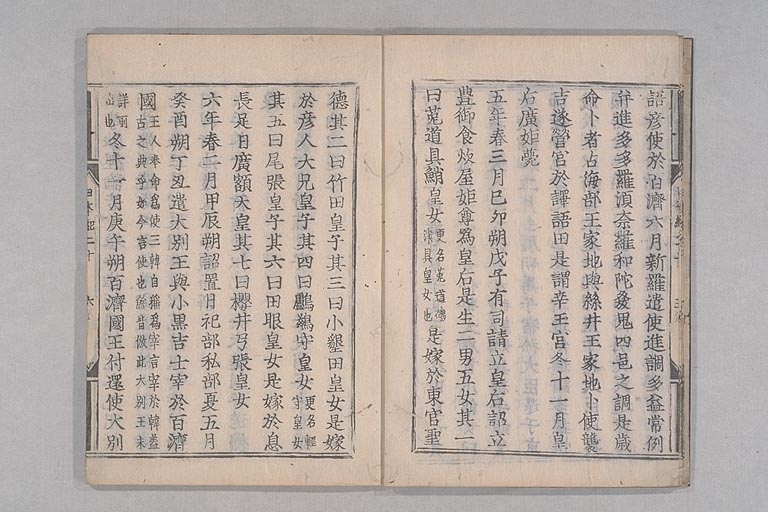 語彦使於泊濟六月新羅遣使進調多益常例
幷進多多羅湏奈羅和陀發鬼四邑之調是歳
命卜者占海部王家地與絲井王家地卜使襲
吉遂營宮於譯語田是謂幸玉宮冬十一月皇
后廣姫薨
五年春三月己卯朔戊子有司請立皇后詔立
豊御食炊屋姫尊爲皇后是生二男五女其一
曰菟道貝鮹皇女更名菟道磯津貝皇女也是嫁於東宮聖
德其二曰竹田皇子其三曰小墾田皇女是嫁
於彦人大兄皇子其四曰鸕鷀守皇女更名輕守皇女
其五曰尾張皇子其六曰田眼皇女是嫁於息
長足日廣額天皇其七曰櫻井弓張皇女
六年春二月甲辰朔詔置日祀部私部夏五月
癸酉朔丁丑遣大別王與小黒吉士宰於百濟
國王人奉命爲使三韓自稱爲宰言宰於韓蓋古之典乎如今言使也餘皆倣此大別王未
詳所出也冬十一月庚午朔百濟國王付還使大別
日本紀二十
六